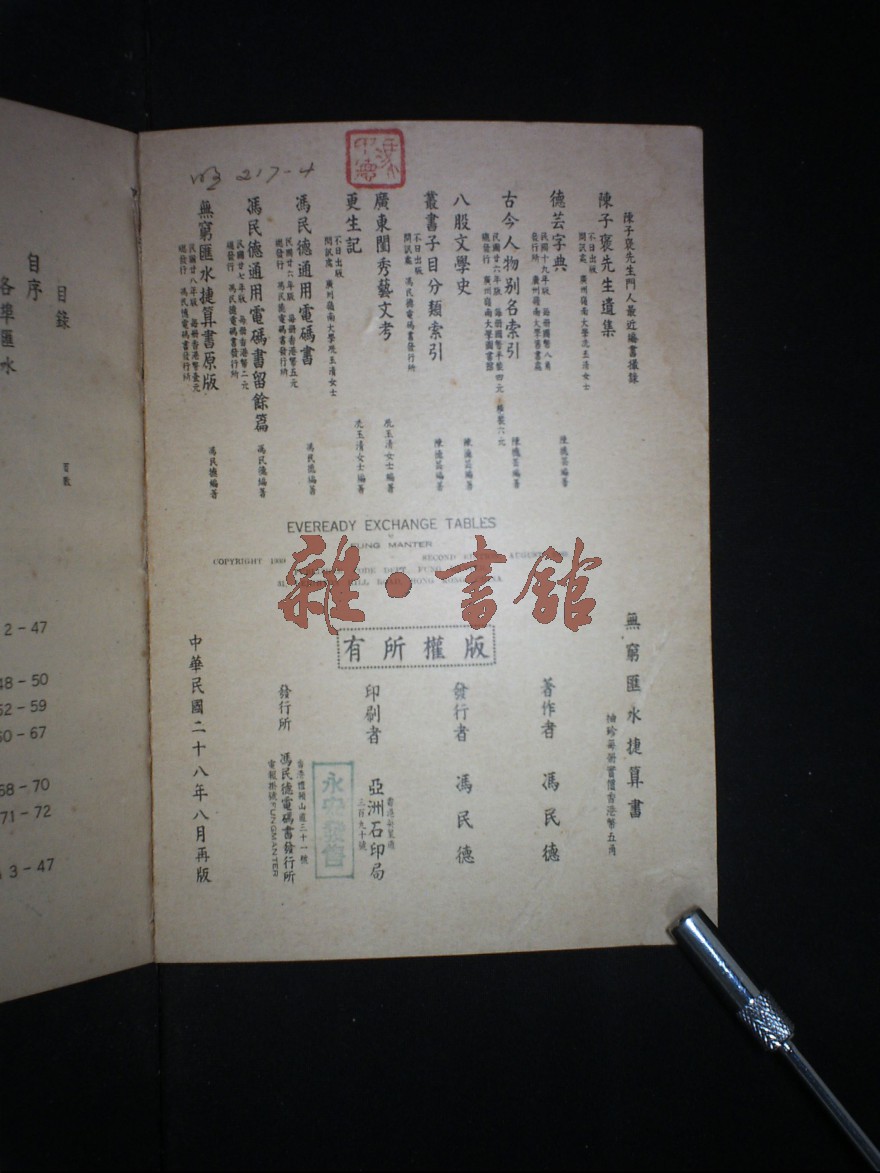 陳子褒先生門人最近編書摭錄
陳子褒先生遺集
不日出版
問訊處 廣州嶺南大學冼玉清女士
德芸字典
民國十九年版 每冊國幣八角
發行所 廣州嶺南大學
陳德芸編著
古今人物别名索引
民國廿六年版 每冊國幣平裝四元 六元
總發行 廣州嶺南大學圖書館
陳德芸編著
八股文學史
陳德芸編著
叢書子目分類索引
不日出版
問訊處 馮民德電碼書發行所
陳德芸編著
廣東閨秀藝文考
冼玉清女士編著
更生記
不日出版
問訊處 廣州嶺南大學冼玉清女士
冼玉清女士編著
馮民德通用電碼書
民國廿六年版 每冊香港幣五元
總發行 馮民德電碼書發行所
馮民德編著
馮民德通用電碼書留餘篇
民國廿七年版 每冊香港幣二元
總發行 馮民德電碼書發行所
馮民德編著
無窮匯水捷算書原版
民國廿八年版 每冊香港幣壹元
總發行 馮民德電碼書發行所
馮民德編著
217-4
EVEREADY EXCHANGE TABLES
FUNG MANTER
COPYRIGHT 1939
SECOND
雜·書館
版權所有
無窮匯水捷算書
袖珍每冊實價香港幣五角
著作者 馮民德
發行者 馮民德
印刷者 亞洲石印局
三百九十號
永安發售
發行所 馮民德電碼書發行所
香港禮頓山道三十一號
電報掛號FUNGMANTER
中華民國二十八年八月再版
目錄
頁數
自序
各埠匯水
2-47
48-50
52-59
60-67
68-70
71-72
3-47